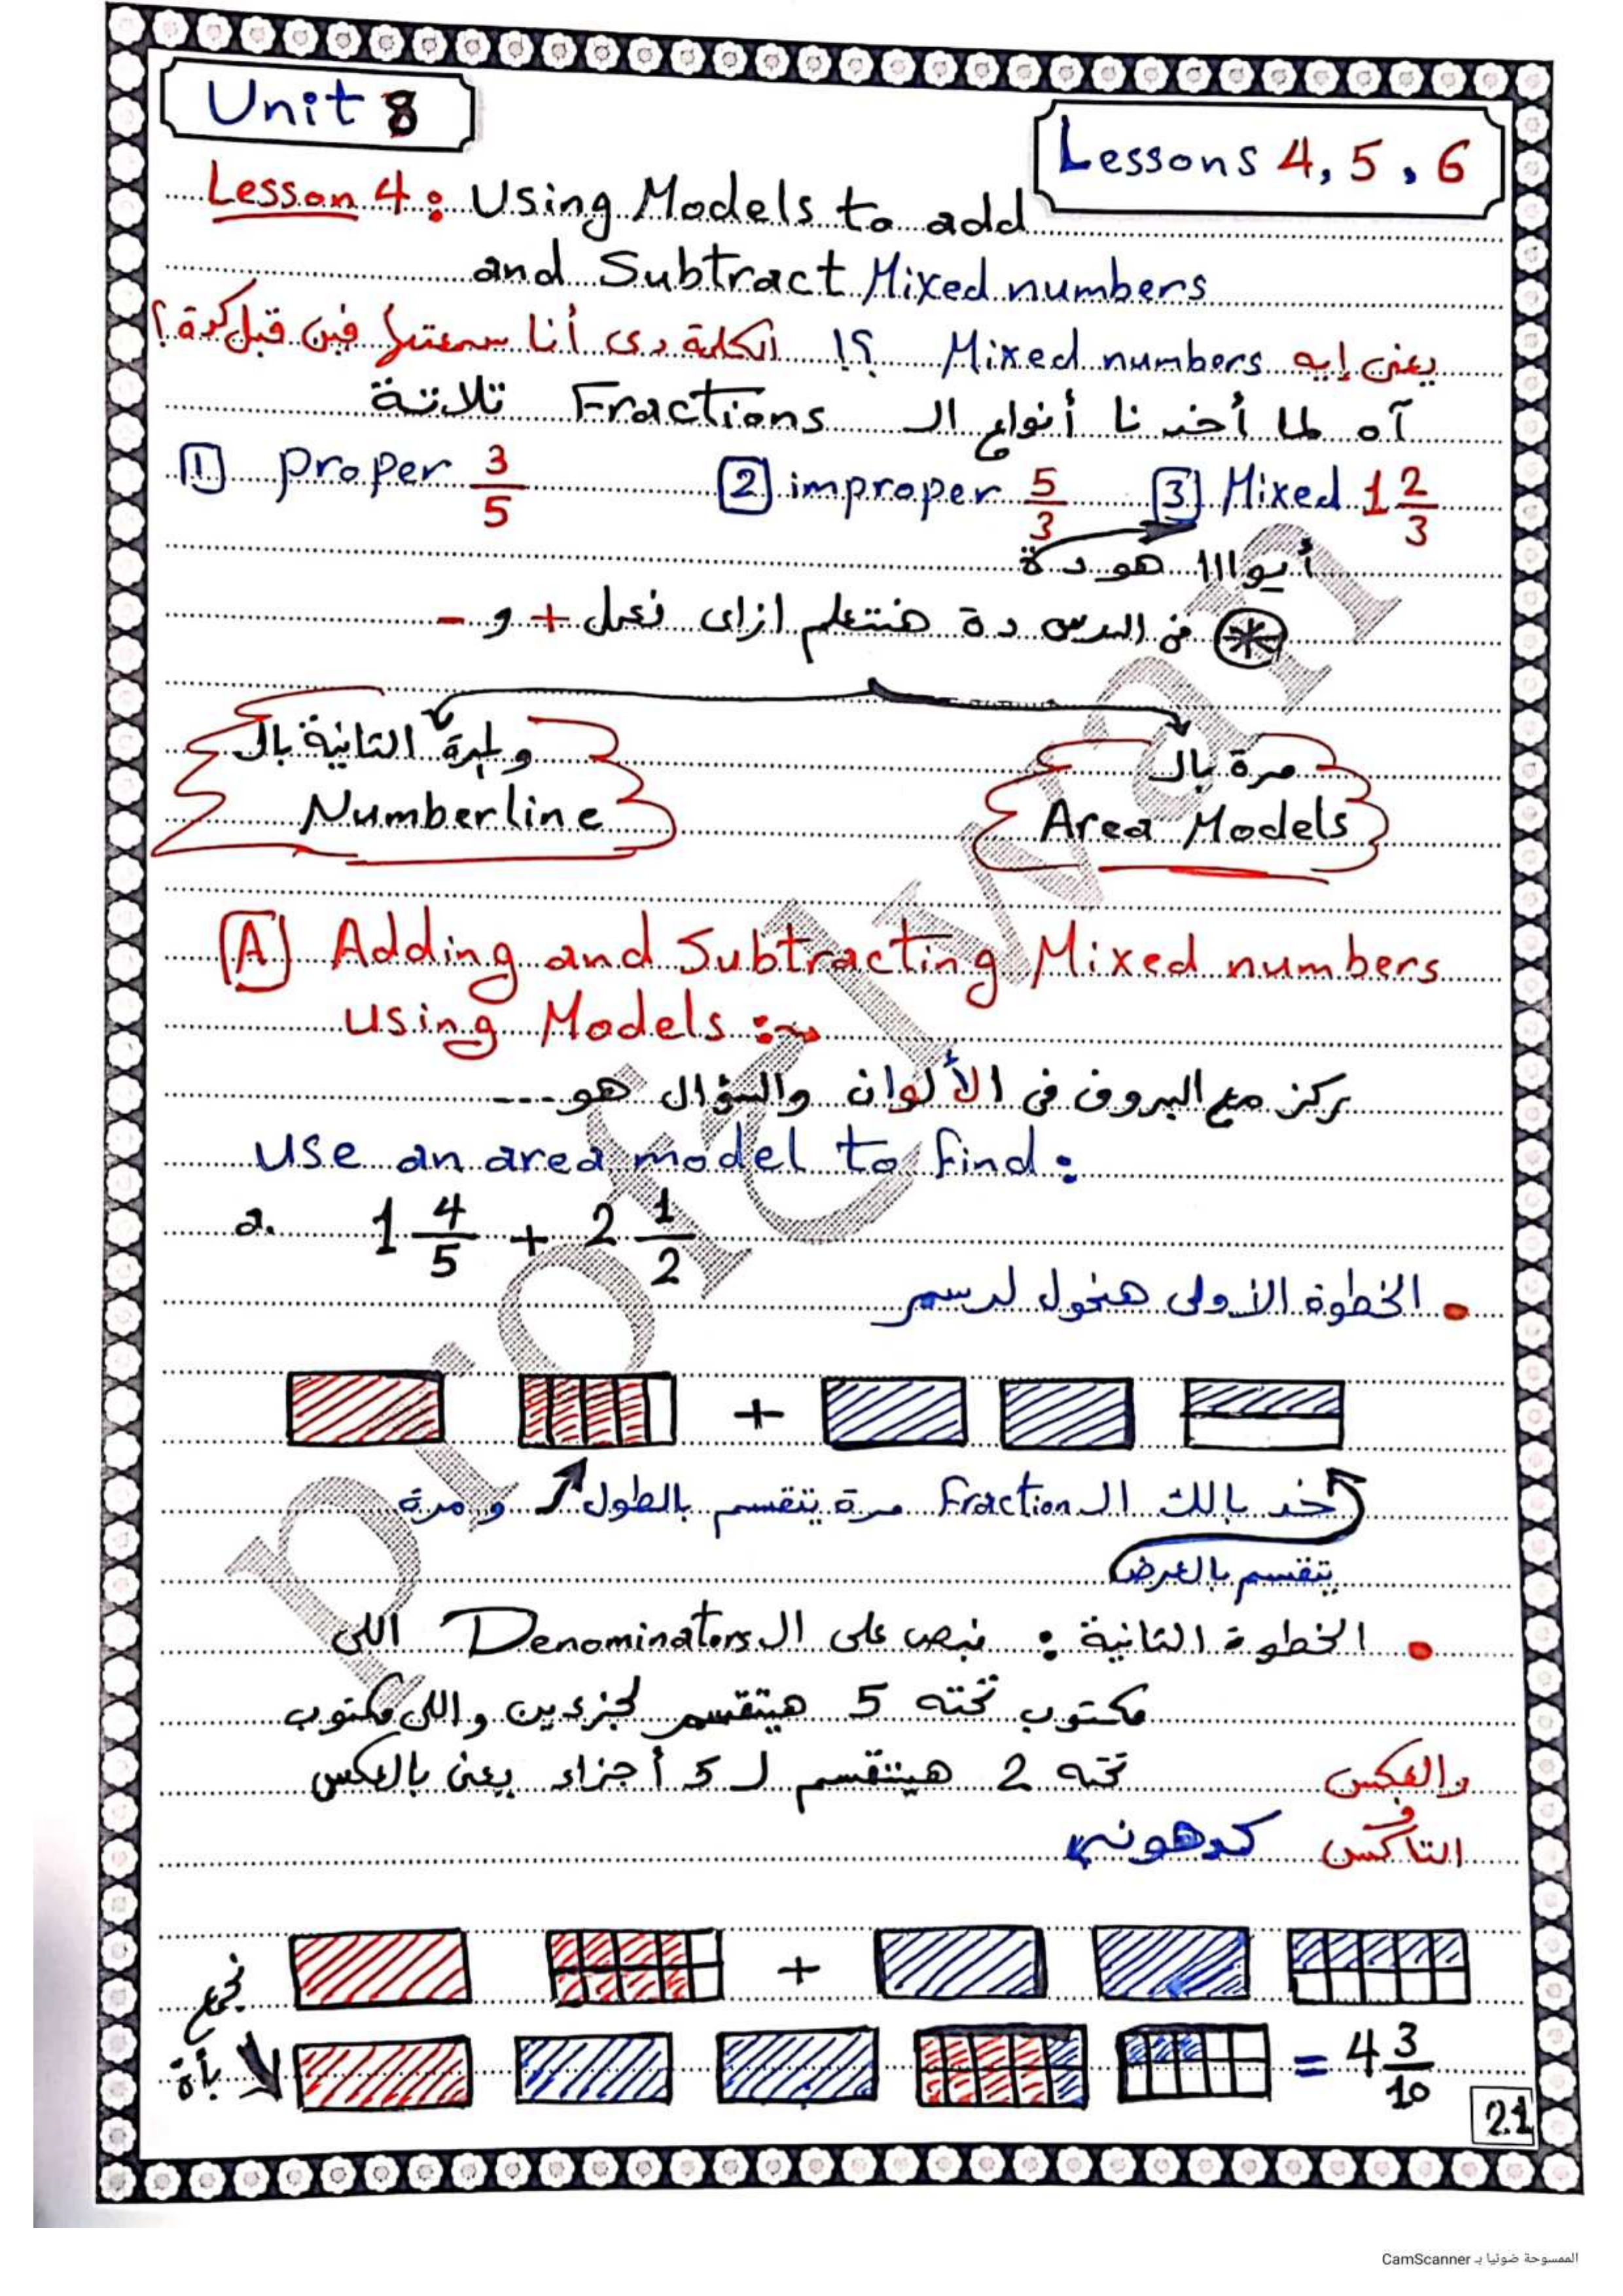 Unit 8
Lessons 4, 5, 6
Lesson 4: Using Models to add
and Subtract Mixed numbers
يعنى إيه Mixed numbers ؟! الكلمة دى أنا سمعتها فين قبل كدة؟
آه لما أخدنا أنواع الـ Fractions تلاتة
1 proper 3/5 2 improper 5/3 3 Mixed 1 2/3
أيوااا هو دة
* فى الدرس دة هنتعلم ازاى نعمل + و -
مرة بالـ
Area Models
والمرة التانية بالـ
Numberline
A Adding and Subtracting Mixed numbers
using Models:
ركز مع البروف فى الألوان والسؤال هو ---
Use an area model to find:
a. 1 4/5 + 2 1/2
• الخطوة الأولى هنحول لرسم
+
خد بالك الـ Fraction مرة يتقسم بالطول ومرة
يتقسم بالعرض
• الخطوة التانية: نبص على الـ Denominators اللى
مكتوب تحته 5 هيتقسم لجزءين واللى مكتوب
تحته 2 هيتقسم لـ 5 أجزاء يعنى بالعكس
والعكس
كدهونى
+
نجمع
بأة
= 4 3/10
21
الممسوحة ضوئيا بـ CamScanner